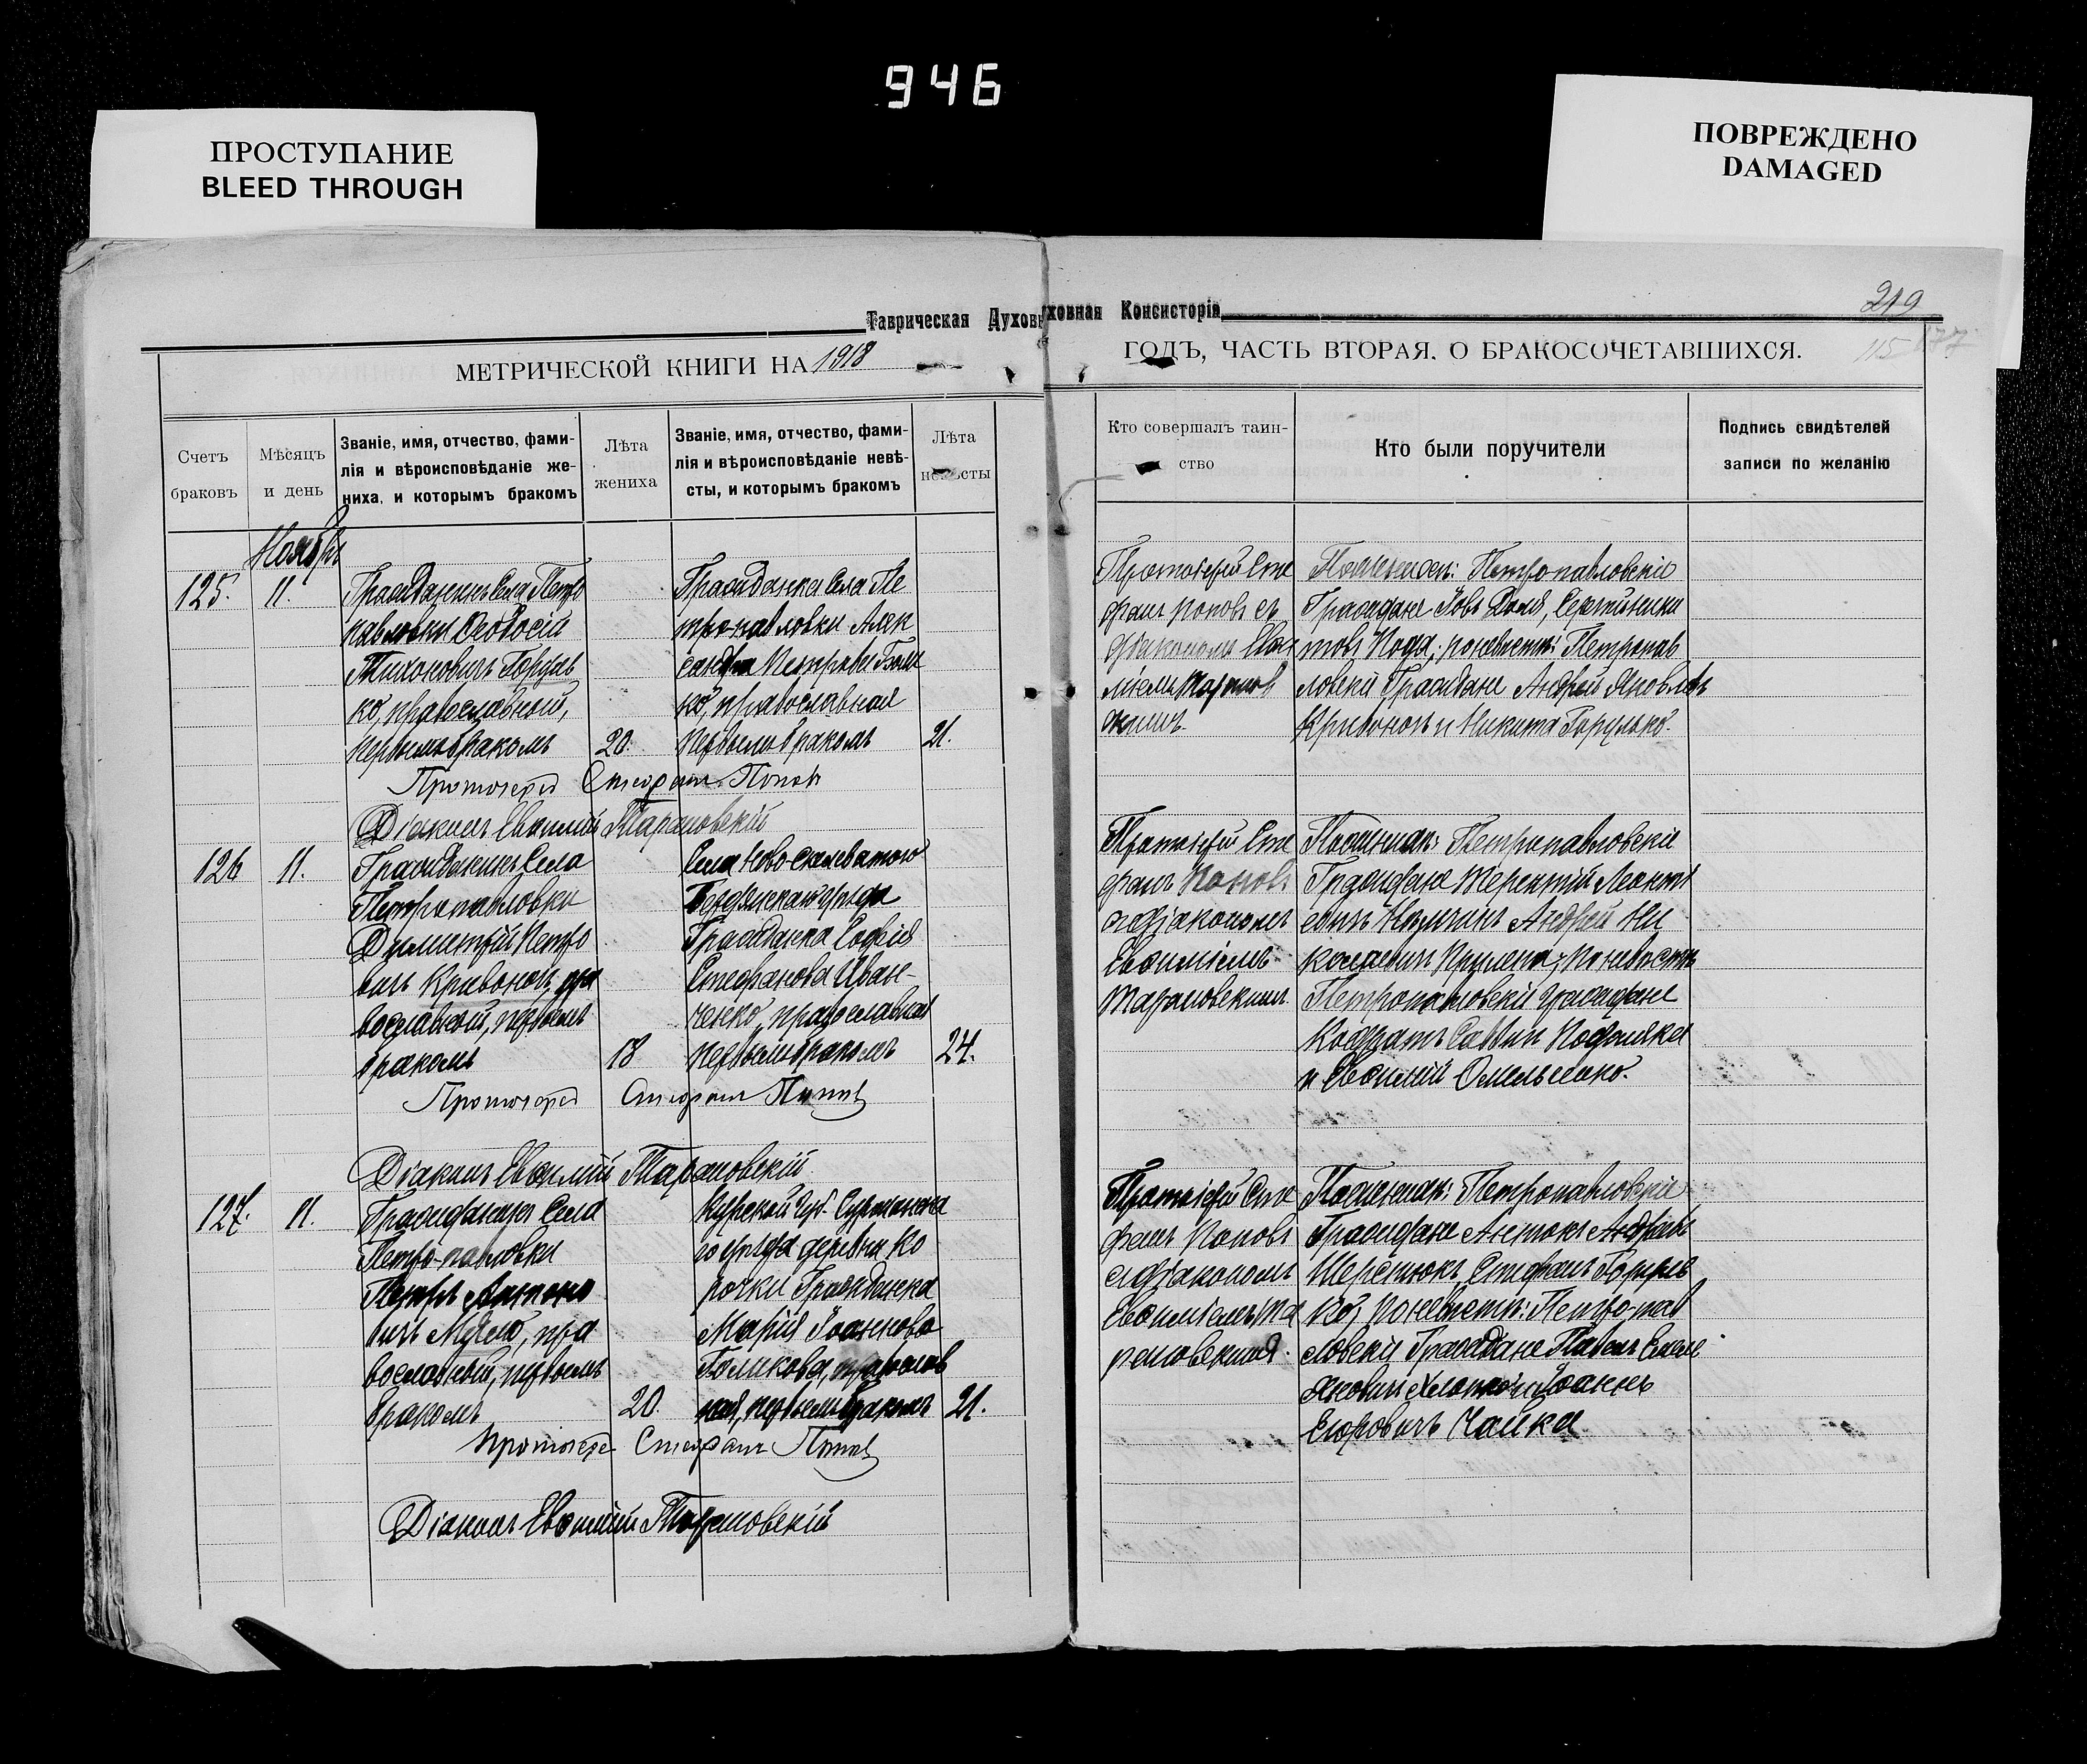 946
ПРОСТУПАНИЕ
BLEED THROUGH
ПОВРЕЖДЕНО
DAMAGED
219
Таврическая Духовная Консисторія
115 177
МЕТРИЧЕСКОЙ КНИГИ НА 1918
ГОДЪ, ЧАСТЬ ВТОРАЯ, О БРАКОСОЧЕТАВШИХСЯ.
Счетъ
браковъ
Мѣсяцъ
и день
Званіе, имя, отчество, фами-
лія и вѣроисповѣданіе же-
ниха, и которымъ бракомъ
Лѣта
жениха
Званіе, имя, отчество, фами-
лія и вѣроисповѣданіе невѣ-
сты, и которымъ бракомъ
Лѣта
невѣсты
Кто совершалъ таин-
ство
Кто были поручители
Подпись свидѣтелей
записи по желанію
Ноябрь
125.
11.
Гражданинъ Села Петро
павловки Ѳеодосій
Тихоновичъ Горуль
ко, православный,
первымъ бракомъ
20.
Гражданка Села Пе
тро-павловки Алек
сандра Петрова Бой
ко, православная
первымъ бракомъ
21.
Протоіерей Сте
фанъ Поповъ съ
діакономъ Евѳи
міемъ
По женихѣ: Петропавловскіе
Граждане Іовъ
по невѣстѣ: Петропав
ловскіе Граждане Андрей Яковлевъ
Кривоносъ и Никита Горулько.
Протоіерей Стефанъ Поповъ
Діаконъ Евѳимій Тарановскій
126
11.
Гражданинъ Села
Петропавловки
Димитрій Петро
вичъ Кривоносъ, пра
вославный, первымъ
бракомъ
18
Села Ново-Спасватого
Бердянскаго уѣзда
Гражданка Софія
Стефанова Иван-
ченко, православная
первымъ бракомъ
24.
Протоіерей Сте
фанъ Поповъ
съ діакономъ
Евѳиміемъ
Тарановскимъ.
По женихѣ: Петропавловскіе
Граждане Терентій Леонть
евичъ Андрей Ни
колаевичъ по невѣстѣ
Петропавловскіе граждане
Кондратъ Саввичъ
и Евѳимій Омельченко.
Протоіерей Стефанъ Поповъ
Діаконъ Евѳимій Тарановскій
127.
11.
Гражданинъ Села
Петро-павловки
Петръ Антоно
вичъ пра
вославный, первымъ
бракомъ
20.
Курской Губ.
го уѣзда деревни Ко
рочки Гражданка
Марія Іоаннова
Голикова, православ
ная, первымъ бракомъ
21.
Протоіерей Сте
фанъ Поповъ
съ діакономъ
Евѳиміемъ Та
рановскимъ.
По женихѣ: Петропавловскіе
Граждане Антонъ Андреевъ
Шерстюкъ, Стефанъ Горуль
ко, по невѣстѣ: Петро-пав
ловскіе Граждане Павелъ Емель
яновичъ и Іоаннъ
Егоровичъ Чайка
Протоіерей Стефанъ Поповъ
Діаконъ Евѳимій Тарановскій